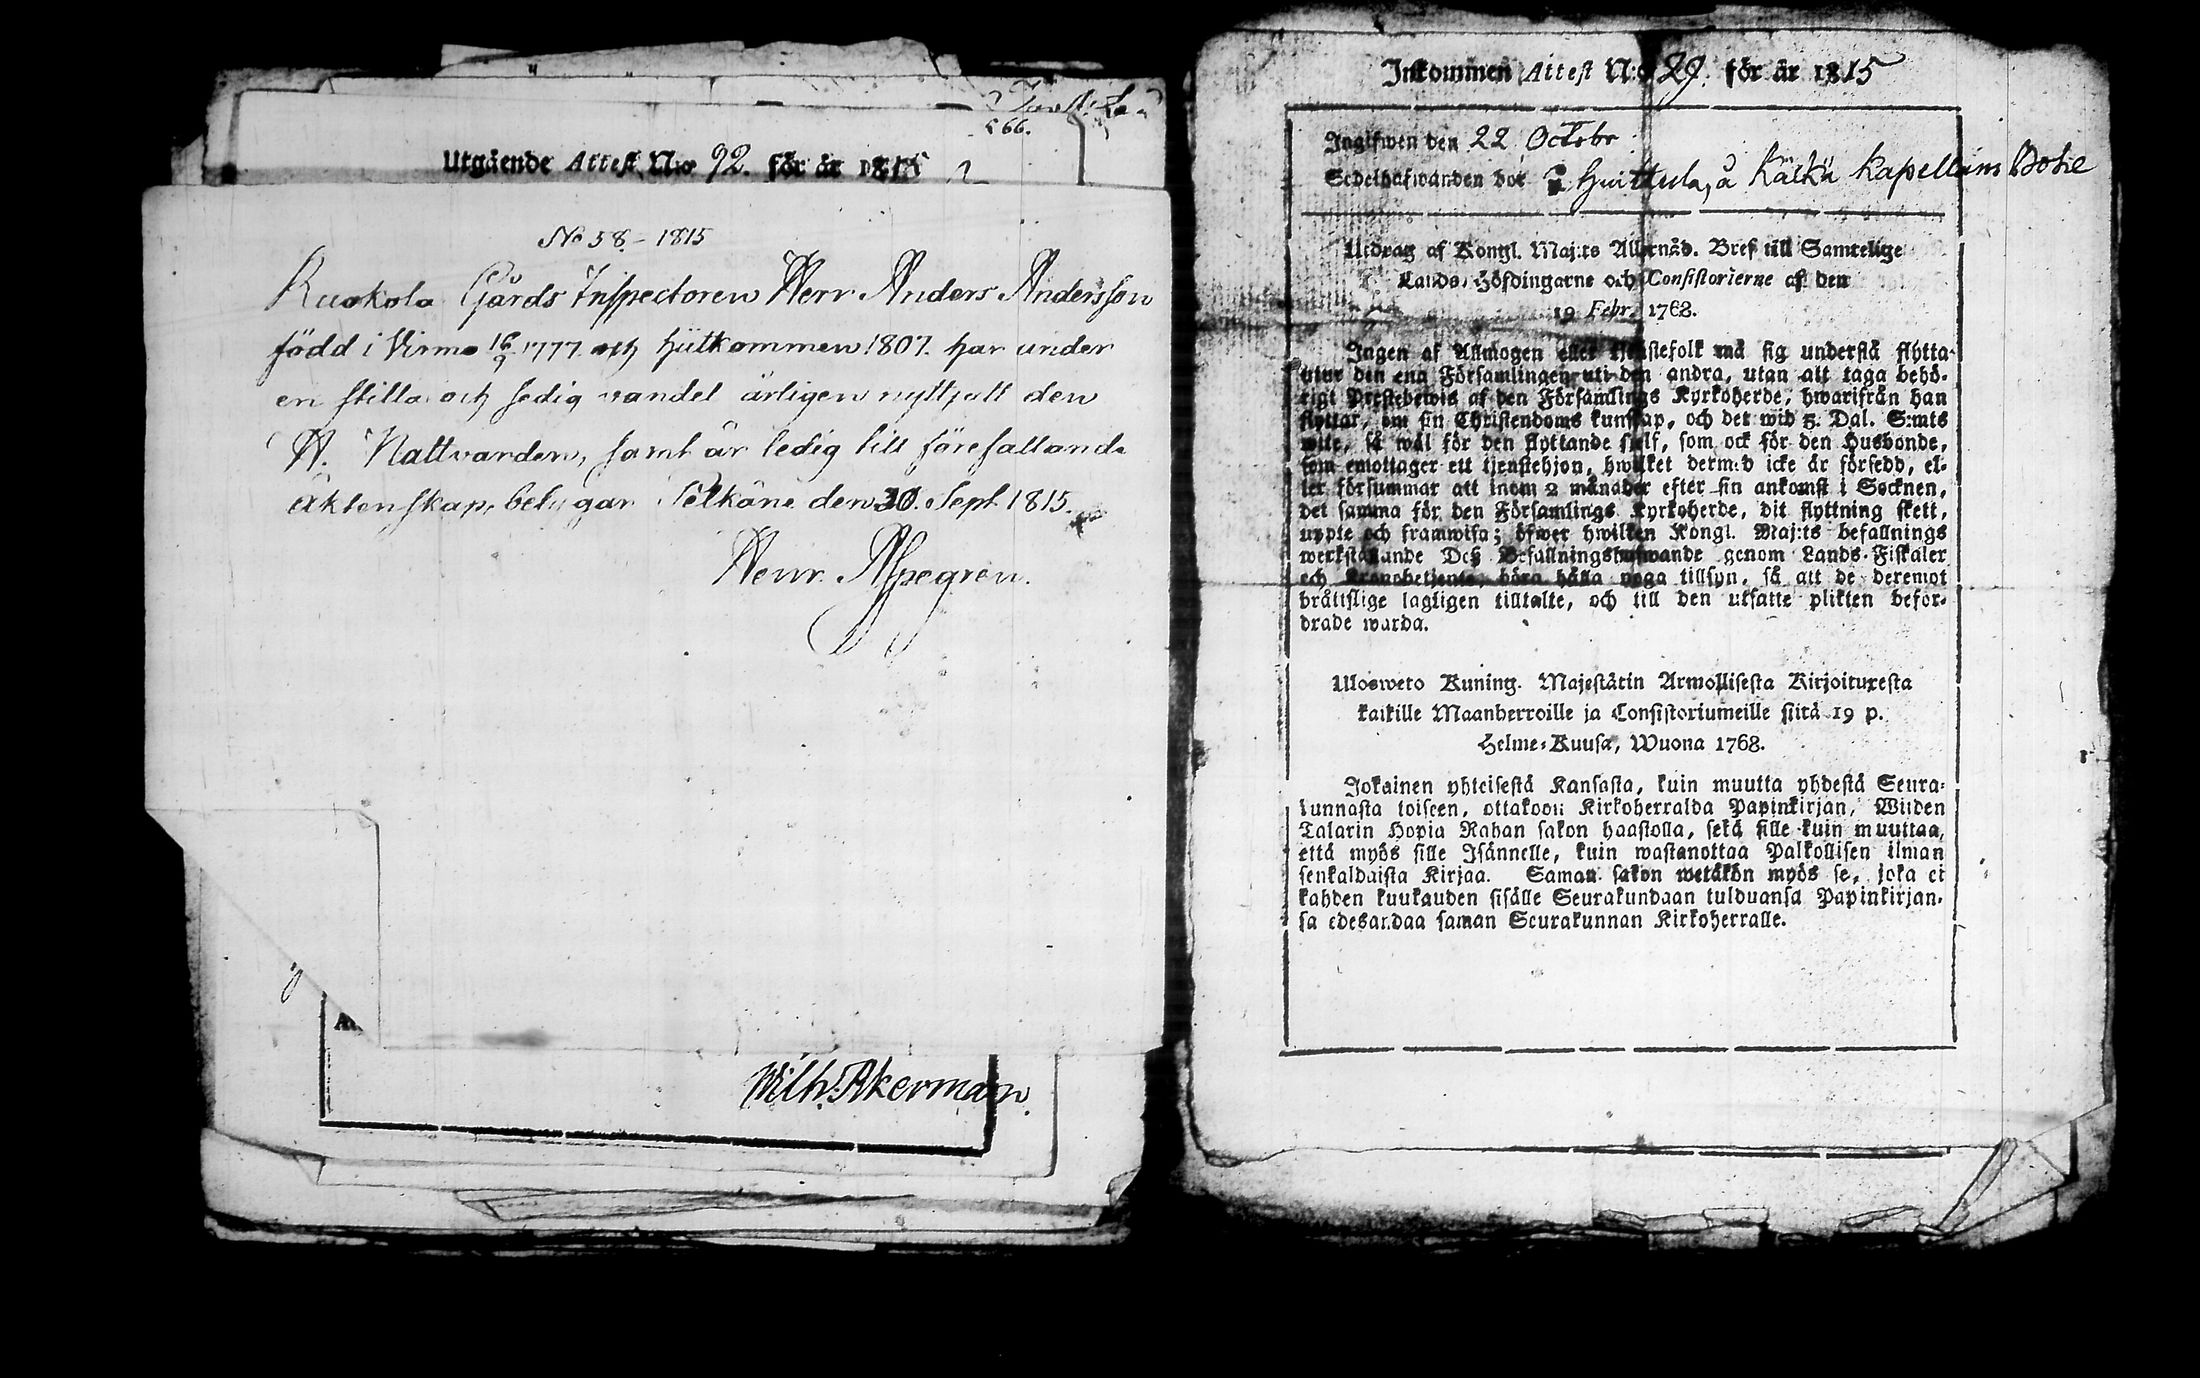 Utgående Attest N:o 92. för år 1815
566.
No 58 - 1815
Ruokola Gårds Inspectoren Herr Anders Andersson
född i Virmo 16/9 1777. och hütkommen 1807. har under
en stilla och sedig vandel ärligen nyttjatt den
H. Nattvarden, samt är ledig till förefallande
äktenskap, betygar Pelkäne den 30. Sept 1815.
Henr. Alpegren.
Wilh. Åkerman.
Inkommen Attest N:o 29. för år 1815
Ingifwen den 22 Octobr
Sedelhafwanden bor i Huittula, å Kälkä Kapellans Bohl
Utdrag af Kongl. Maj:ts Allernåd. Bref till Samtelige
Lands-Höfdingarne och Consistorierne af den
19 Febr. 1768.
Ingen af Allmogen eller tjenstefolk må sig understå flytta
utur den ena Församlingen uti den andra, utan att taga behö-
rigt Prestebewis af den Församlings Kyrkoherde, hwarifrån han
flyttar, om sin Christendoms kunskap, och det wid 5. Dal. S:mts
wite, så wäl för den flyttande sielf, som ock för den Husbonde,
som emottager ett tjenstehjon, hwilket dermed icke är försedd, el-
ler försummar att inom 2 månader efter sin ankomst i Socknen,
det samma för den Församlings Kyrkoherde, dit flyttning skett,
uppte och framwisa; öfwer hwilken Kongl. Maj:ts befallnings
werkställande Deß Befallningshafwande genom Lands-Fiskaler
och Kronobetjente, böra hålla noga tillsyn, så att de deremot
bråttslige lagligen tilltalte, och till den utsatte plikten befor-
drade warda.
Ulosweto Kuning. Majestätin Armollisesta Kirjoituxesta
kaikille Maanherroille ja Consistoriumeille siitä 19 p.
Helme-Kuusa, Wuona 1768.
Jokainen yhteisestä Kansasta, kuin muutta yhdestä Seura-
kunnasta toiseen, ottakoon Kirkoherralda Papinkirjan, Wiiden
Talarin Hopia Rahan sakon haastolla, sekä sille kuin muuttaa,
että myös sille Isännelle, kuin wastanottaa Palkollisen ilman
senkaldaista Kirjaa. Saman sakon wetäkön myös se, joka ei
kahden kuukauden sisälle Seurakundaan tulduansa Papinkirjan-
sa edesandaa saman Seurakunnan Kirkoherralle.